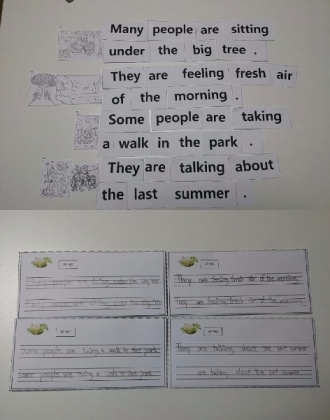 Many people are sitting
under the big tree .
They are feeling fresh air
of the morning .
Some people are taking
a walk in the park .
They are talking about
the last summer .
people are sitting under the big tree
They are feeling fresh air of the morning.
They are feeling fresh air of the morning.
Some people are taking a walk in the park.
Some people are taking a walk in the park.
They are talking about the last summer
are talking about the last summer